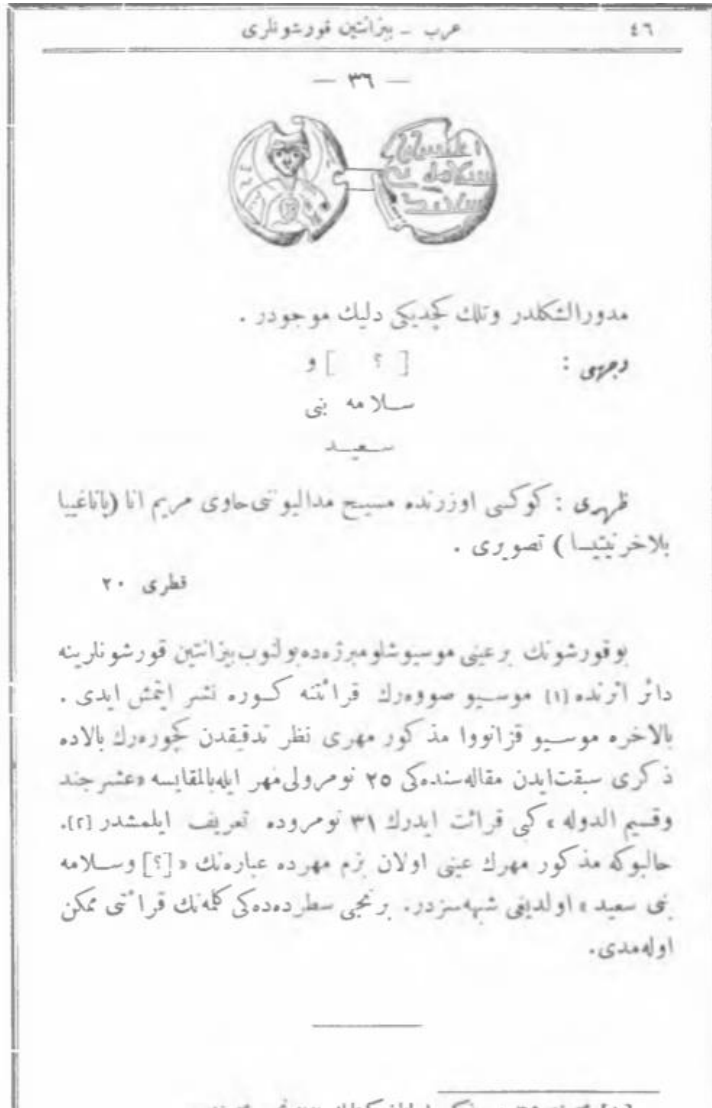 ٤٦ عرب ـ بيزانتين قورشونلرى
— ٣٦ —
مدورالشكلدر وتلك كچديكى دليك موجودر .
وجهى : [ ؟ ] و
سلامه بنى
سعيد
ظهرى : كوكسى اوزرنده مسيح مداليوننى حاوى مريم انا (پاناغييا
بلاخرنيتيسا ) تصويرى .
قطرى ٢٠
بوقورشونك برعينى موسيوشلومبرژه‌ده بولنوب بيزانتين قورشونلرينه
دائر اثرنده [١] موسيو صووه‌رك قرائتنه كوره نشر ايتمش ايدى .
بالاخره موسيو قزانووا مذكور مهرى نظر تدقيقدن كچوره‌رك بالاده
ذكرى سبقت‌ايدن مقاله‌سنده‌كى ٢٥ نومرولى‌مهر ايله‌بالمقايسه «عشرجند
وقسيم الدوله» كبى قرائت ايدرك ٣١ نومروده تعريف ايلمشدر [٢].
حالبوكه مذكور مهرك عينى اولان بزم مهرده عباره‌نك «[؟] وسلامه
بنى سعيد» اولديغى شبهه‌سزدر. برنجى سطرده‌كى كلمه‌نك قرائتى ممكن
اوله‌مدى.